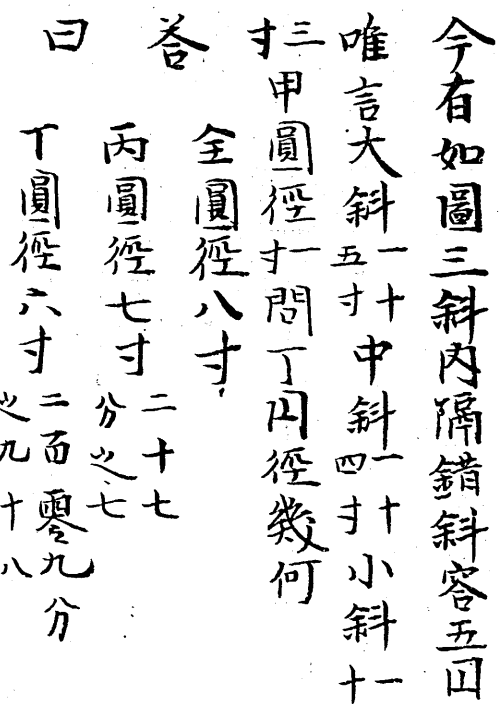 今有如圖三斜内隔錯斜容五円
唯言大斜一十五寸中斜一十四寸小斜一十
三寸甲圓徑一寸問丁円徑幾何
答曰
全圓徑八寸
丙圓徑七寸二十七分之七
丁圓徑六寸二百零九分之九十八